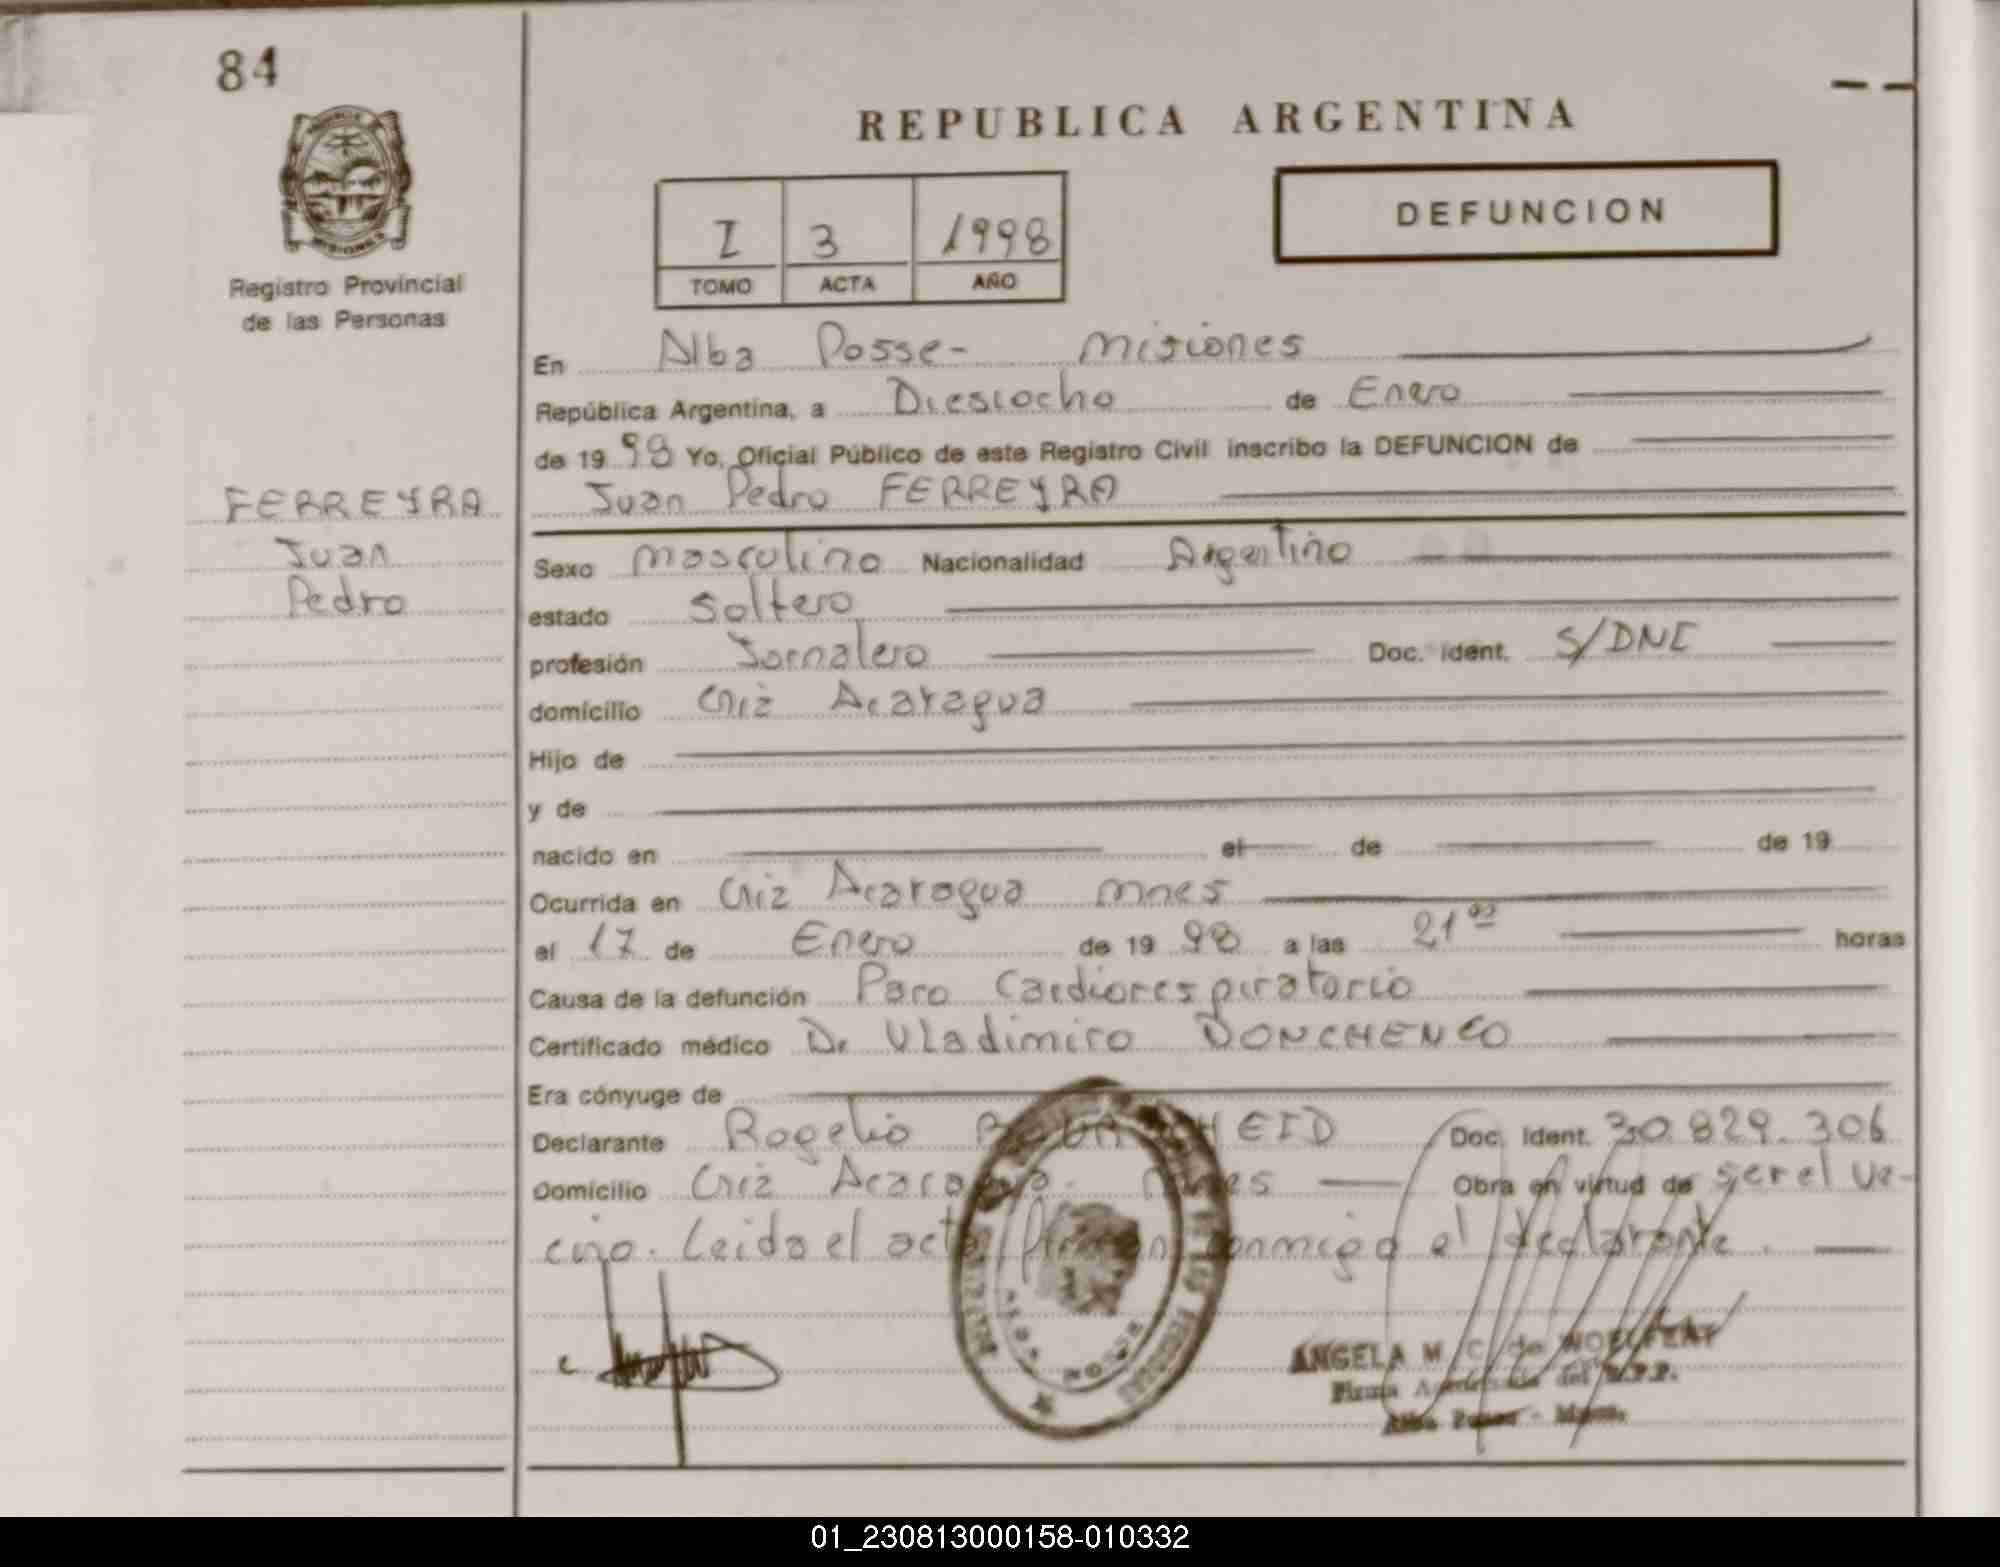 84
REPUBLICA ARGENTINA
I 3 1998
TOMO ACTA AÑO
DEFUNCION
Registro Provincial
de las Personas
En Alba Posse - Misiones
República Argentina, a Diesiocho de Enero
de 19 98 Yo, Oficial Público de este Registro Civil inscribo la DEFUNCION de
FERREYRA
Juan
Pedro
Juan Pedro FERREYRA
Sexo Masculino Nacionalidad Argentino
estado Soltero
profesión Jornalero Doc. ident. S/DNI
domicilio Acaragua
Hijo de
y de
nacido en el de de 19
Ocurrida en Acaragua Mnes
el 17 de Enero de 19 98 a las 21 horas
Causa de la defunción Paro Cardiorespiratorio
Certificado médico Dr Vladimiro DONCHENCO
Era cónyuge de
Declarante Rogelio Doc. Ident. 30.829.306
Domicilio Acaragua. Mnes Obra en virtud de ser el ve-
cino. Leida el acta conmigo el declarante.
ANGELA M. C. de
Firma del R.P.P.
Alba Posse - Mnes.
01_230813000158-010332